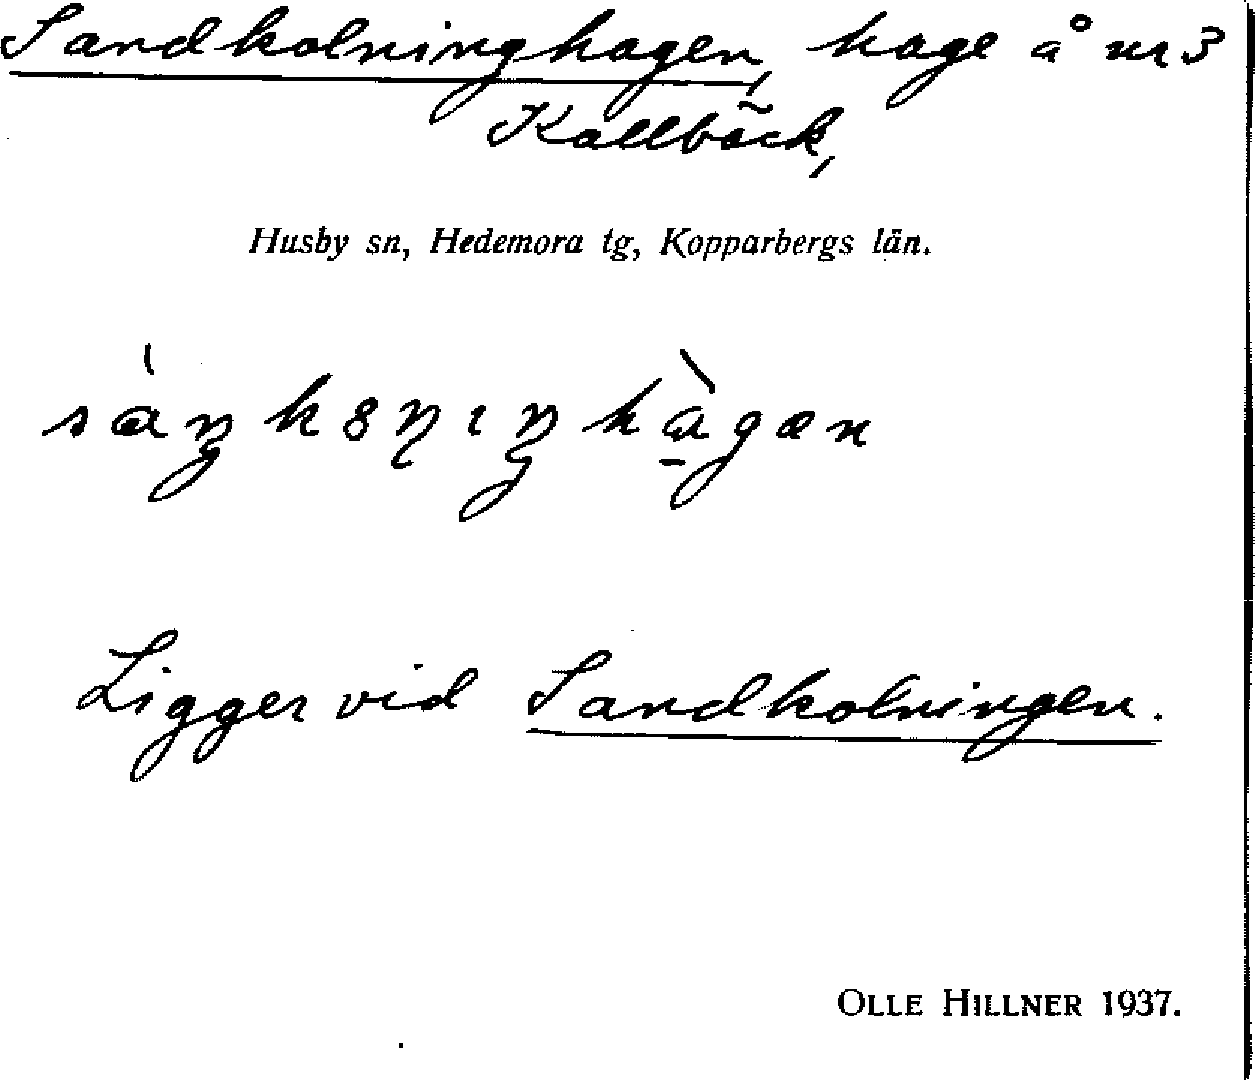 Sandkolninghagen, hage å nr 3
Kallbäck,
Husby sn, Hedemora tg, Kopparbergs län.
sàŋk8ɳıŋhàgæn
Ligger vid Sandkolningen.
OLLE HILLNER 1937.